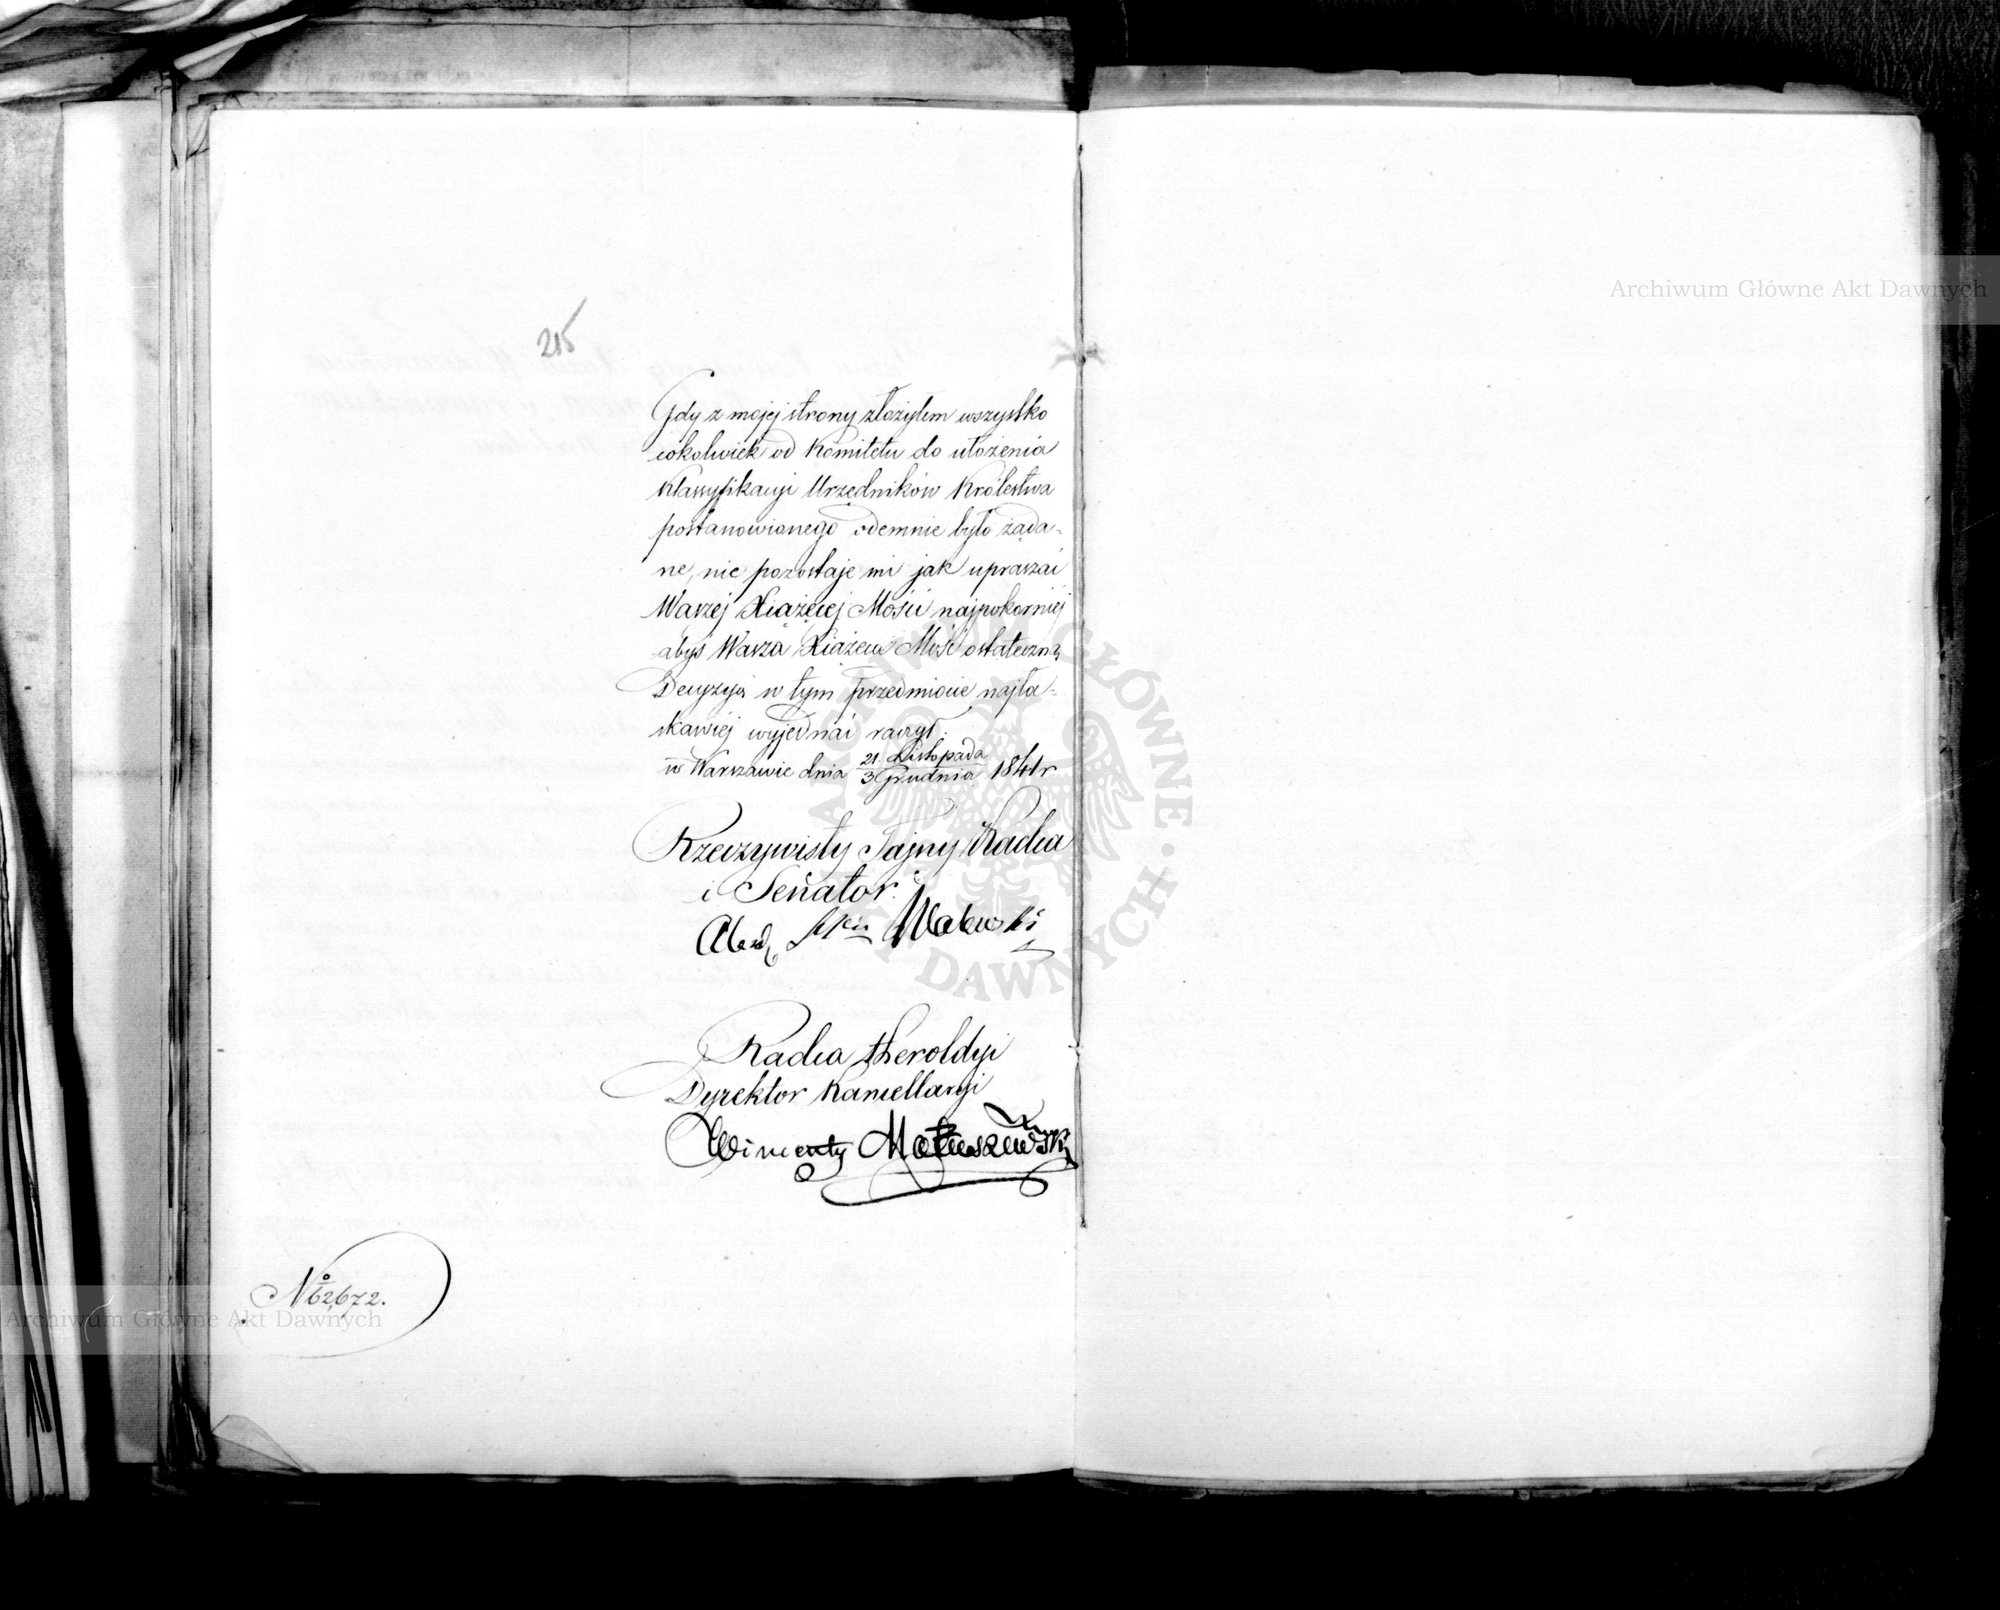 215
Gdy z mojej strony złożyłem wszystko
cokolwiek od Komitetu do ułożenia
Klassyfikacyi Urzędników Królestwa
postanowionego odemnie było żąda-
ne, nie pozostaje mi jak upraszać
Waszej Xiążęcej Mości najpokorniej
abyś Wasza Xiążęca Mość ostateczną
Decyzyją w tym przedmiocie najła-
skawiéj wyjednać raczył.
w Warszawie dnia 21. Listopada / 3 Grudnia 1841 r.
Rzeczywisty Tajny Radca
i Senator.
Alexd. Walewski
Radca Heroldyi
Dyrektor Kancellaryi
Wincenty Matuszewski
No 62,672.
Archiwum Główne Akt Dawnych
Archiwum Główne Akt Dawnych
ARCHIWUM GŁÓWNE AKT DAWNYCH